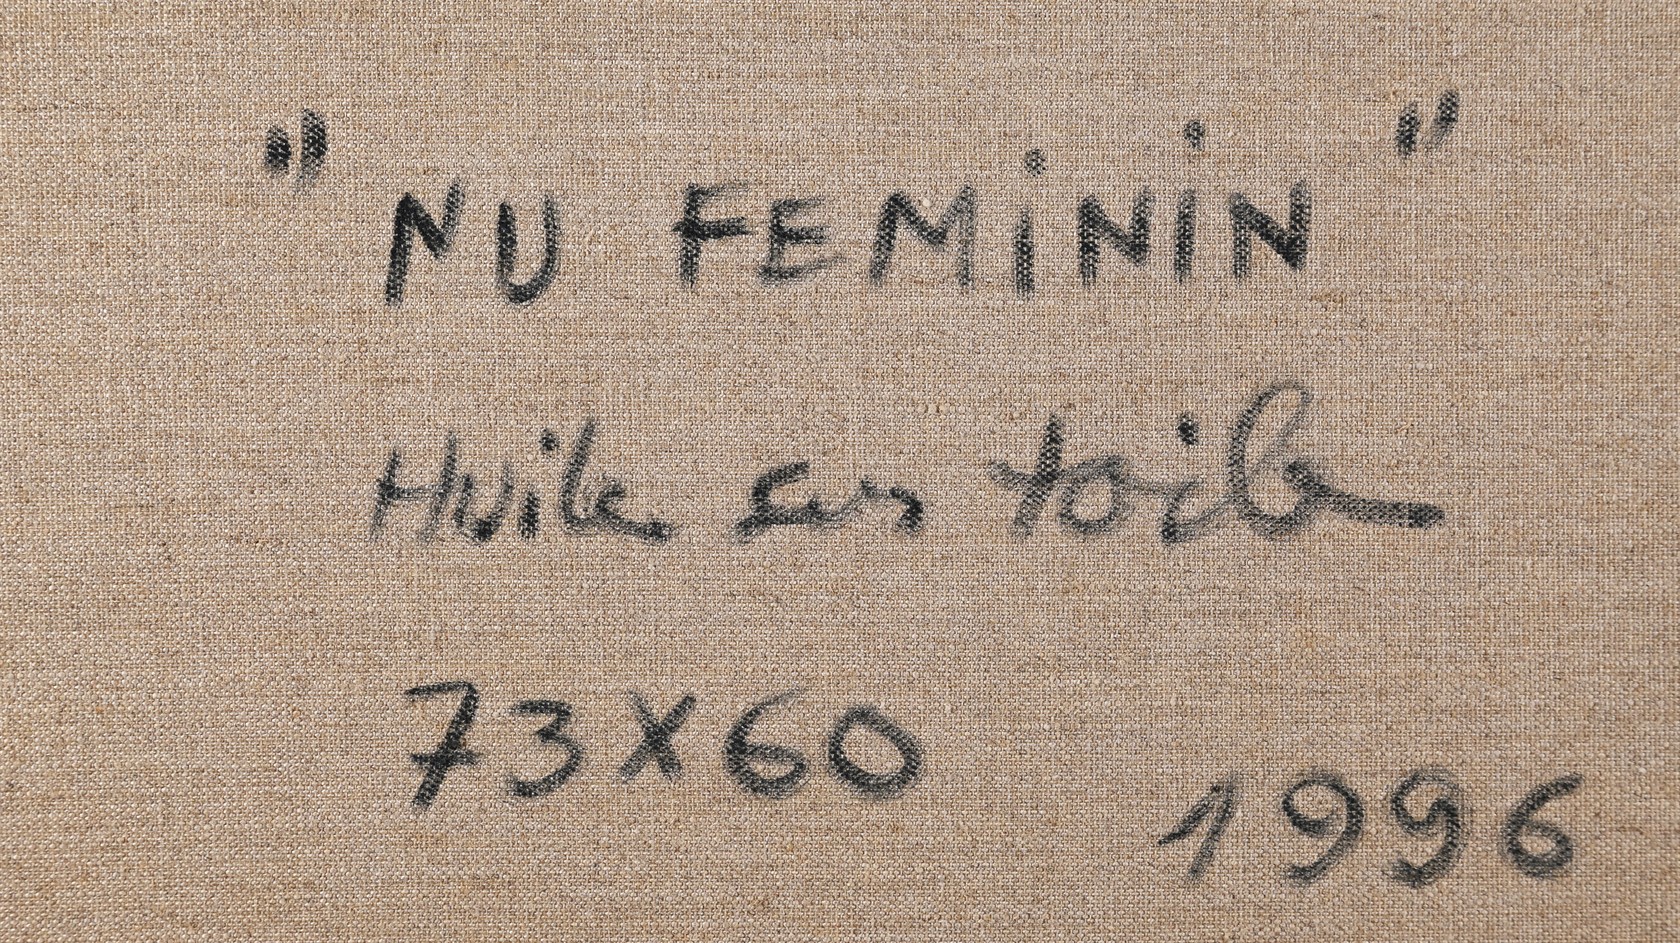 "NU FEMiNiN"
Huile sur toile
73X60
1996